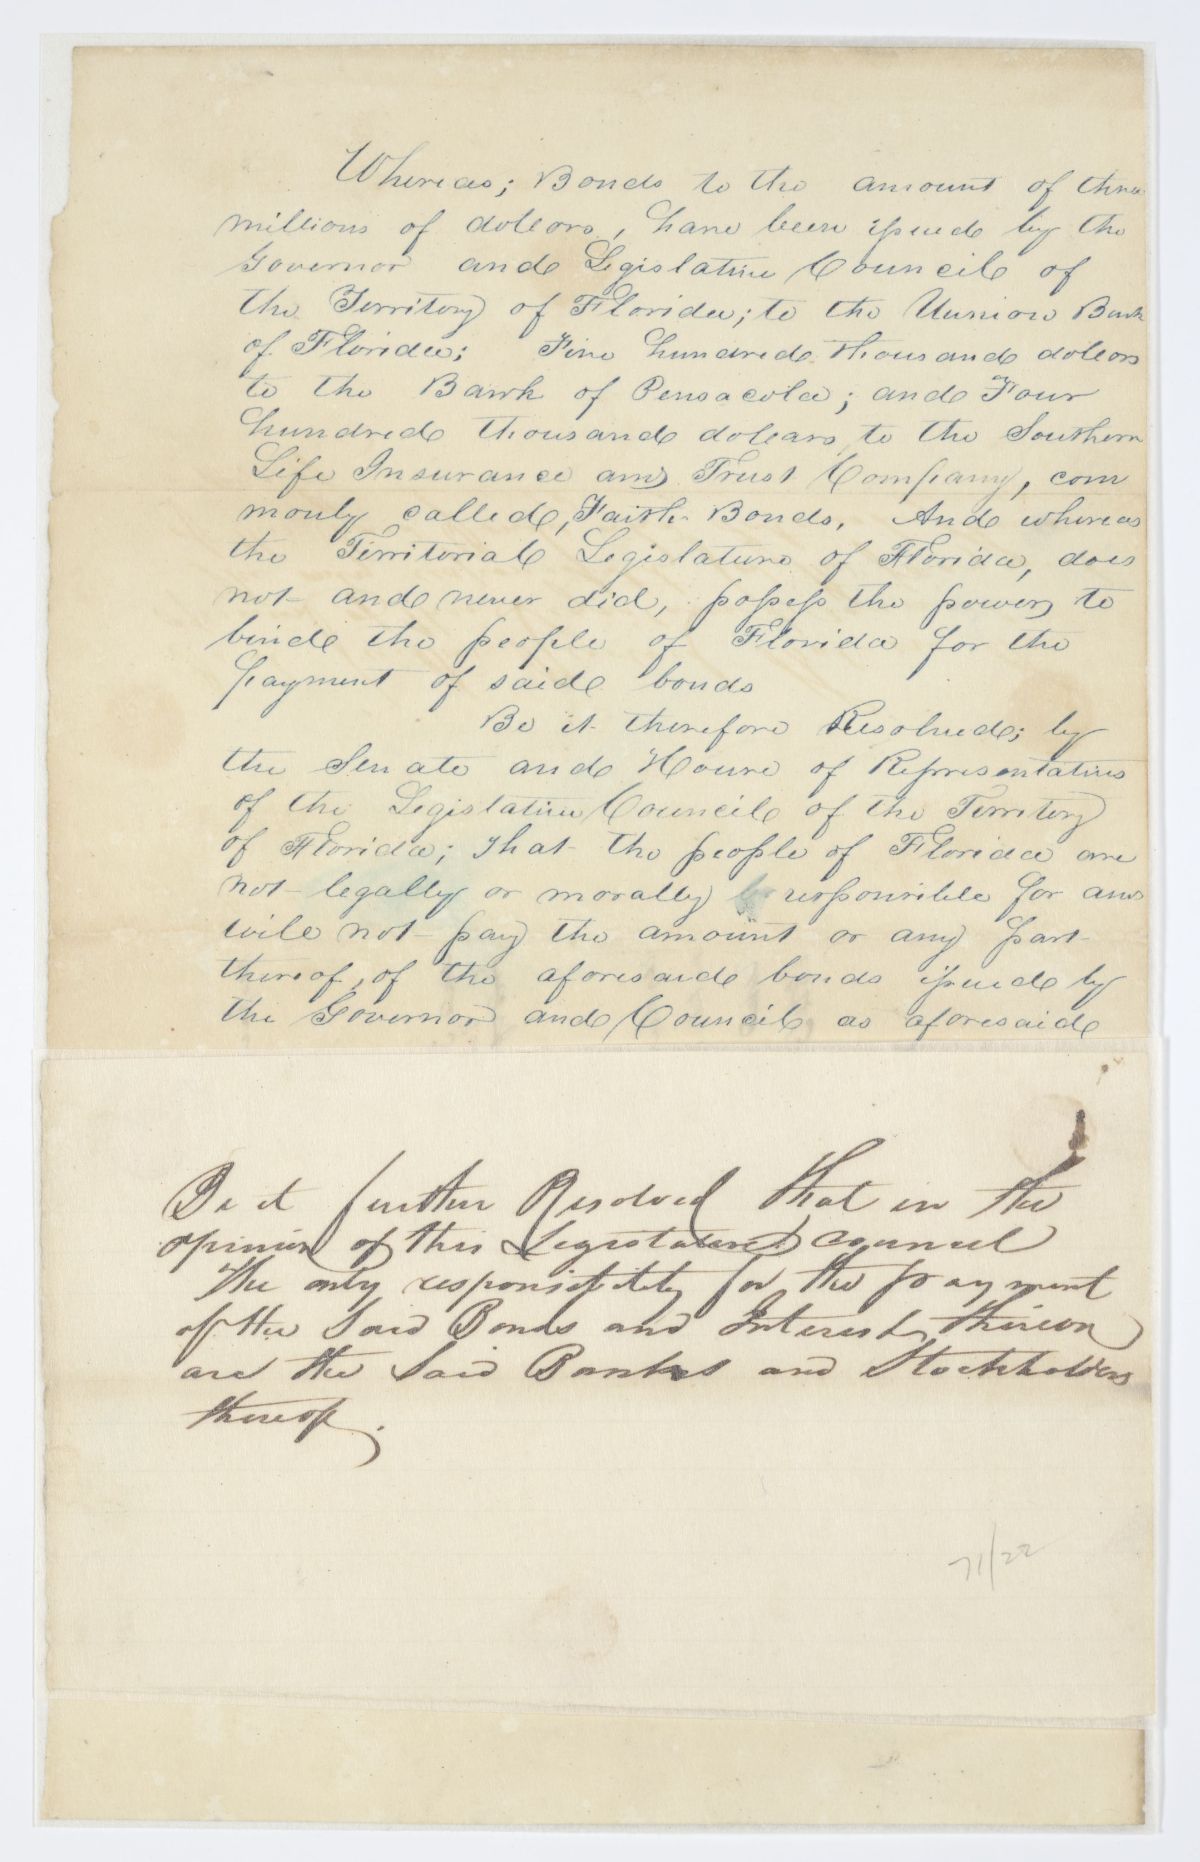 Whereas; Bonds to the amount of three
millions of dollars, have been issued by the
Governor and Legislative Council of
the Territory of Florida; to the Uunion Bank
of Florida; Five hundred thousand dollars
to the Bank of Pensacola; and Four
hundred thousand dolears to the Southern
Life Insurance and Trust Company, com
monly called, Faith Bonds. And whereas
the Territorial Legislature of Florida, does
not and never did, possess the power to
bind the people of Florida for the
payment of said bonds
Be it therefore Resolved; by
the Senate and House of Representatives
of the Legislative Council of the Territory
of Florida; That the people of Florida are
not legally or morally responsible for and
will not pay the amount or any part
thereof, of the aforesaid bonds issued by
the Governor and Council as aforesaid
Be it further Resolved That in the
opinion of this Legislative Council
The only responsibility for the payment
of the Said Bonds and Interest thereon
are the Said Banks and Stockholders
thereof.
71/22